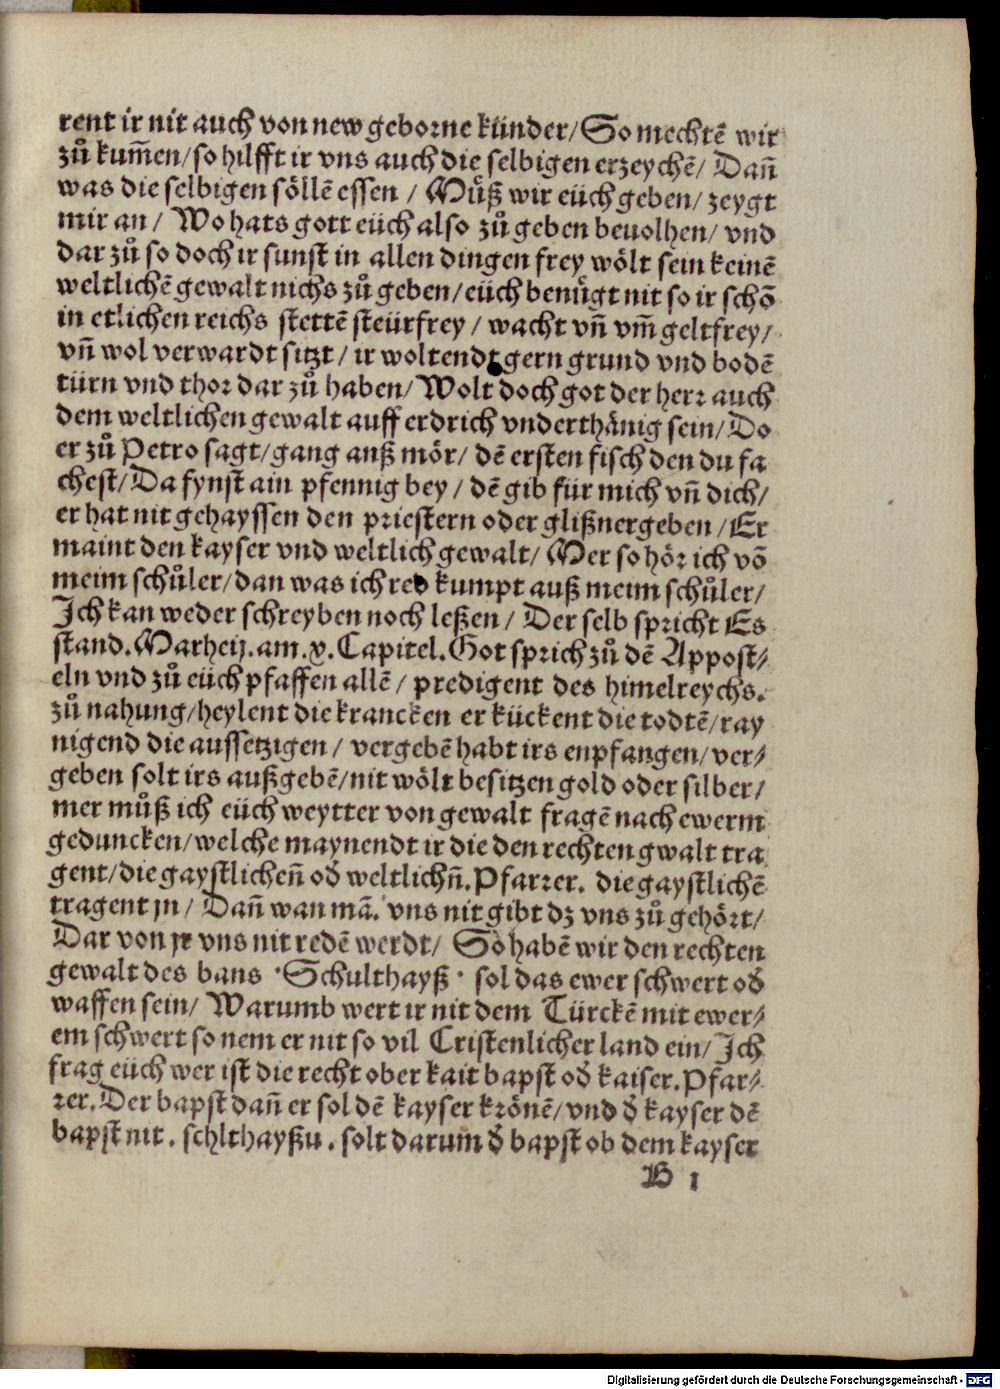 rent ir nit auch von new geborne künder/ So mechtē wir
zů kum̄en/ so hilfft ir vns auch die selbigen erzeychē/ Dan̄
was die selbigen söllē essen / Müß wir eüch geben/ zeygt
mir an/ Wo hats gott eüch also zů geben beuolhen/ vnd
dar zů so doch ir sunst in allen dingen frey wölt sein keinē
weltlichē gewalt nichs zů geben/ eüch benügt nit so ir schō
in etlichen reichs stettē steürfrey / wacht vn̄ vm̄ geltfrey/
vn̄ wol verwardt sitzt / ir woltendt gern grund vnd bodē
türn vnd thor dar zů haben/ Wolt doch got der herr auch
dem weltlichen gewalt auff erdrich vnderthänig sein/ Do
er zů Petro sagt/ gang anß mör/ dē ersten fisch den du fa
chest/ Da fynst ain pfennig bey / dē gib für mich vn̄ dich/
er hat nit gehayssen den priestern oder glißner geben/ Er
maint den kayser vnd weltlich gewalt/ Mer so hör ich vō
meim schůler/ dan was ich red kumpt auß meim schůler/
Ich kan weder schreyben noch leßen/ Der selb spricht Es
stand. Marheij. am. x. Capitel. Got sprich zů dē Appost⸗
eln vnd zů eüch pfaffen allē / predigent des himelreychs.
zů nahung/ heylent die krancken er kückent die todtē/ ray
nigend die aussetzigen / vergebē habt irs enpfangen/ ver⸗
geben solt irs außgebē/ nit wölt besitzen gold oder silber/
mer můß ich eüch weytter von gewalt fragē nach ewerm
geduncken/ welche maynendt ir die den rechten gwalt tra
gent/ die gaystlichen̄ od̄ weltlichn̄. Pfarrer. die gaystlichē
tragent jn / Dan̄ wan mā. vns nit gibt dz vns zů gehört/
Dar von jr vns nit redē werdt/ So habē wir den rechten
gewalt des bans · Schulthayß · sol das ewer schwert od̄
waffen sein/ Warumb wert ir nit dem Türckē mit ewer⸗
em schwert so nem er nit so vil Cristenlicher land ein/ Ich
frag eüch wer ist die recht ober kait bapst od̄ kaiser. Pfar⸗
rer. Der bapst dan̄ er sol dē kayser krönē/ vnd d̄ kayser dē
bapst nit . schlthayßu . solt darum d̄ bapst ob dem kayser
B 1
Digitalisierung gefördert durch die Deutsche Forschungsgemeinschaft - DFG